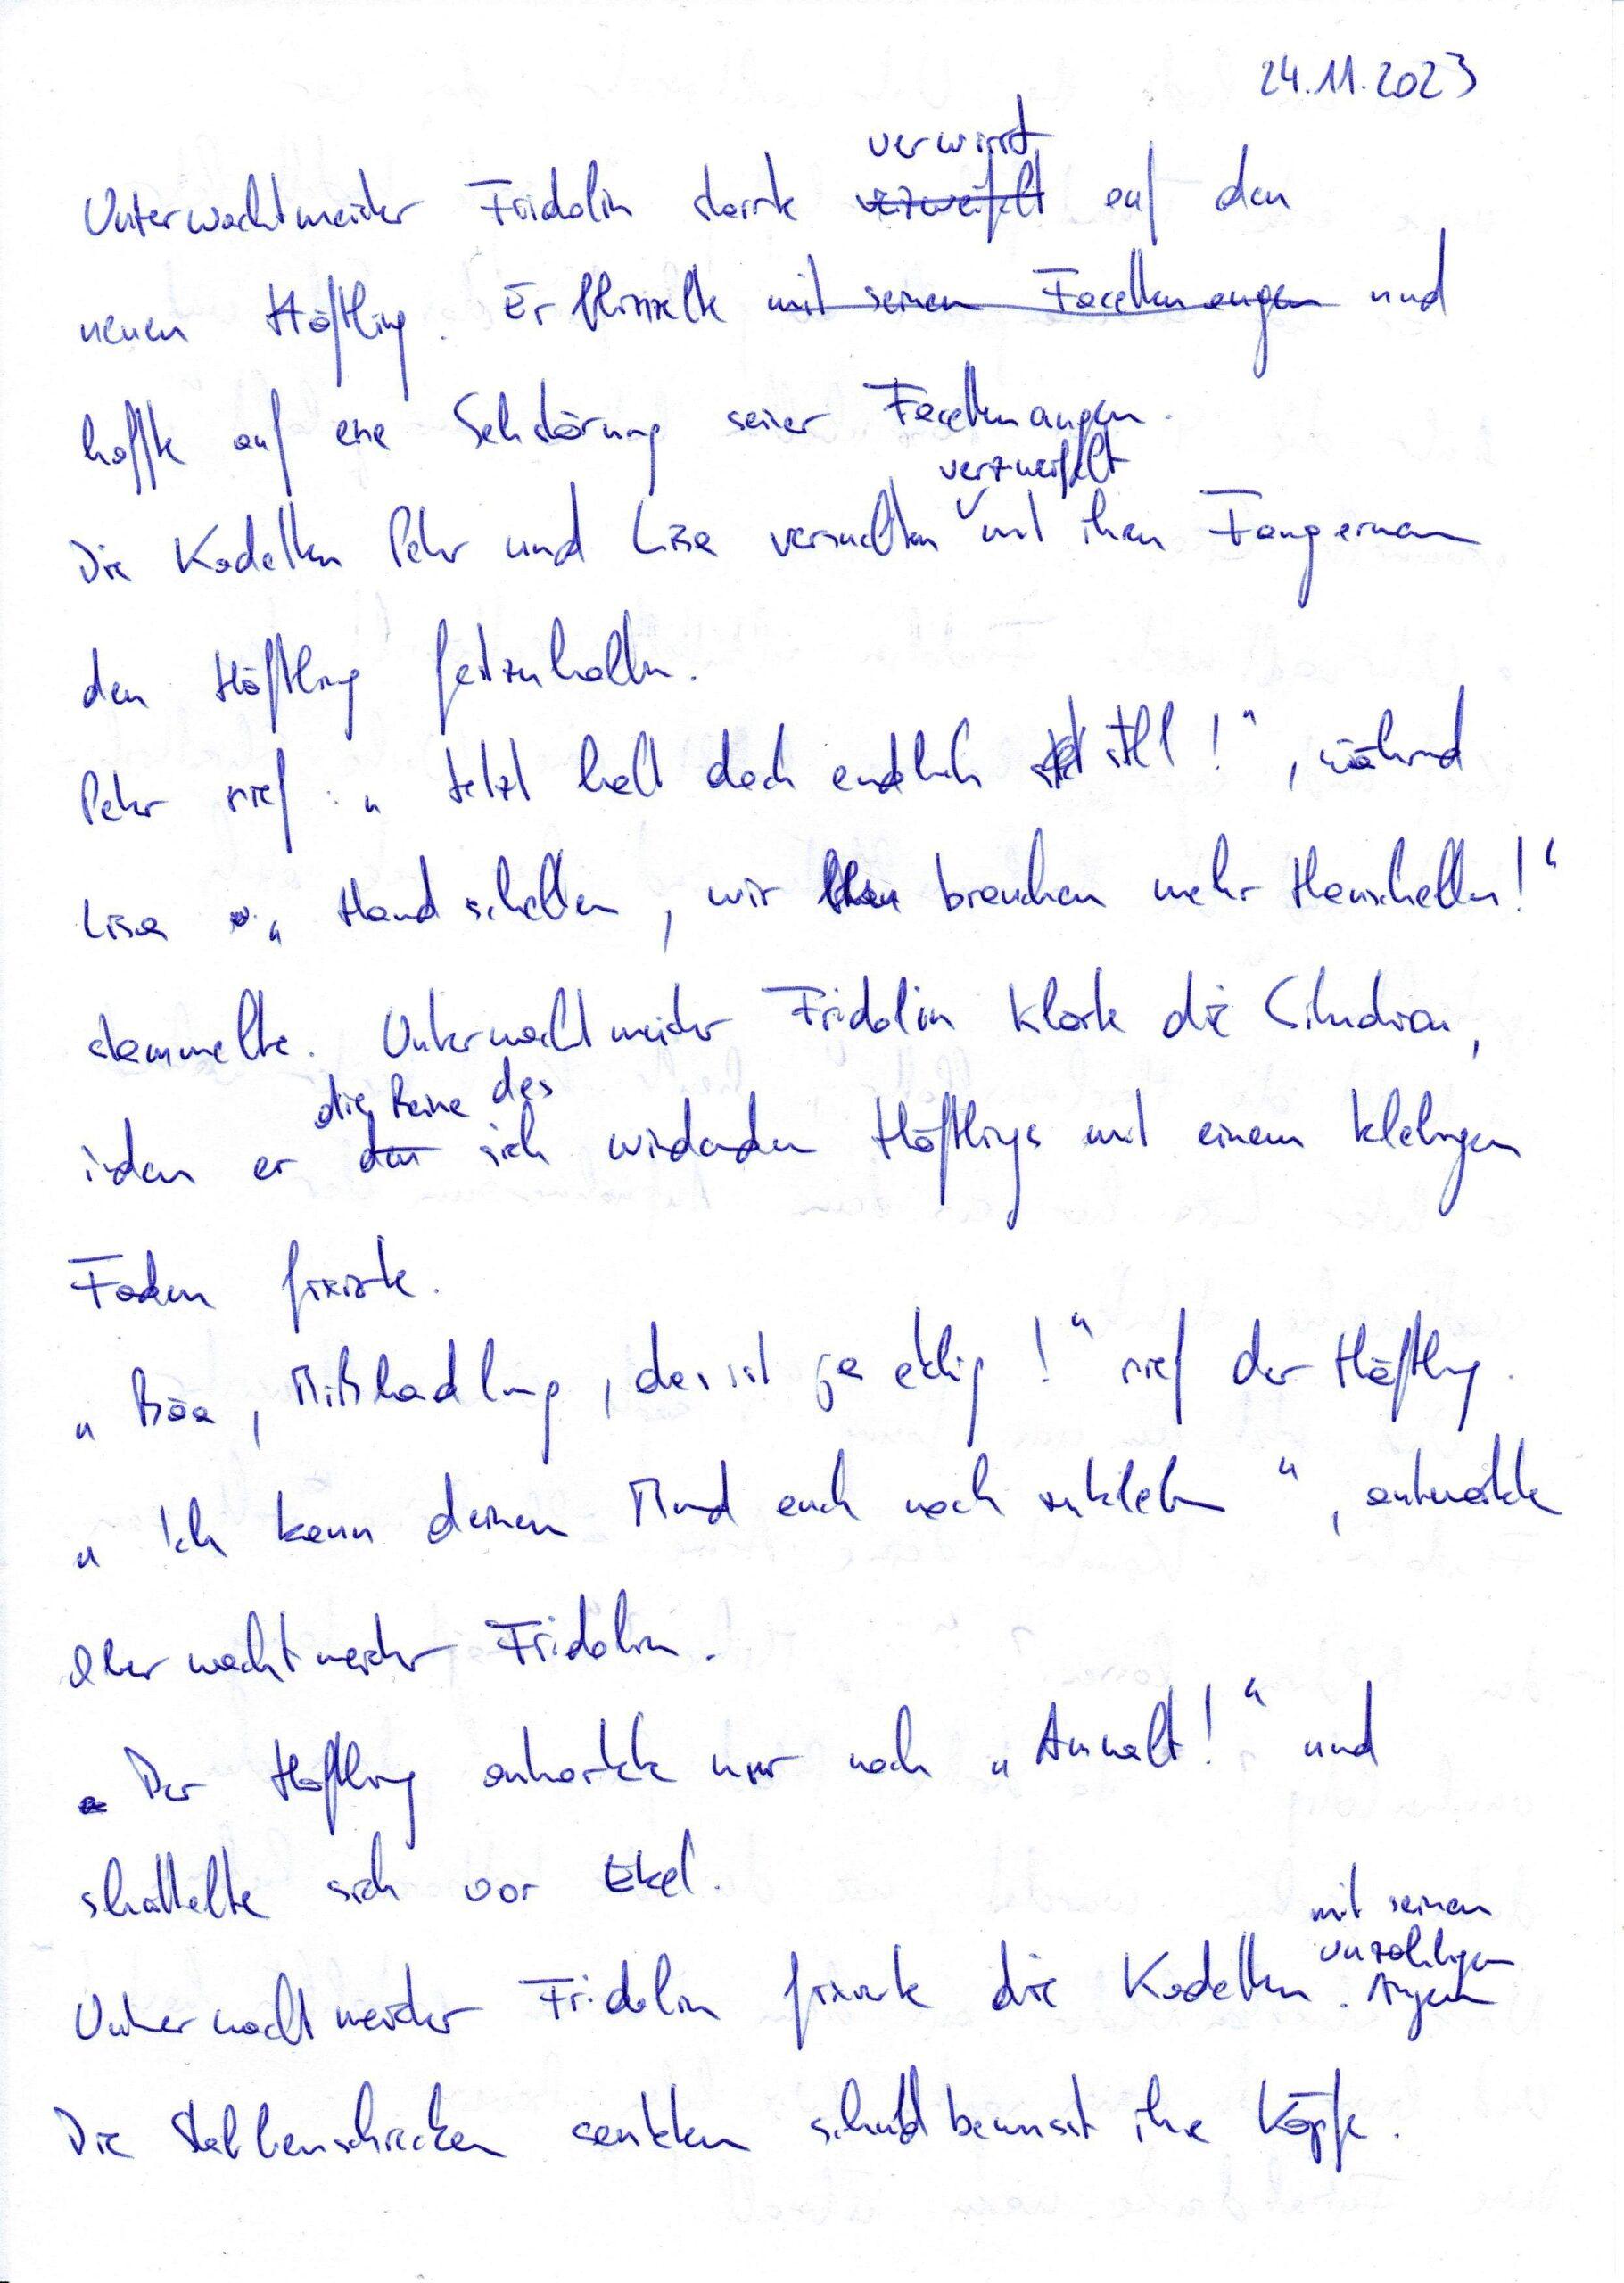 24.11.2023
verwirrt
Unterwachtmeister Fridolin starrte verzweifelt auf den
neuen Häftling. Er blinzelte mit seinen Facettenaugen und
hoffte auf eine Sehstörung seiner Facettenaugen.
verzweifelt
Die Kadetten Peter und Lisa versuchten mit ihren Fangarmen
den Häftling festzuhalten.
Peter rief: „Jetzt halt doch endlich still!“, während
Lisa „Handschellen, wir brauchen mehr Hanschellen!“
stammelte. Unterwachtmeister Fridolin klärte die Situation,
die Beine des
indem er den sich windenden Häftlings mit einem klebrigen
Faden fixierte.
„Bäa, Mißhandlung, das ist ja eklig!“ rief der Häftling.
„Ich kann deinen Mund auch noch zukleben“, antwortete
Oberwachtmeister Fridolin.
Der Häftling antwortete nur noch „Anwalt!“ und
schüttelte sich vor Ekel.
mit seinen
unzähligen
Unterwachtmeister Fridolin fixierte die Kadetten. Augen
Die Stabheuschrecken senkten schuldbewusst ihre Köpfe.